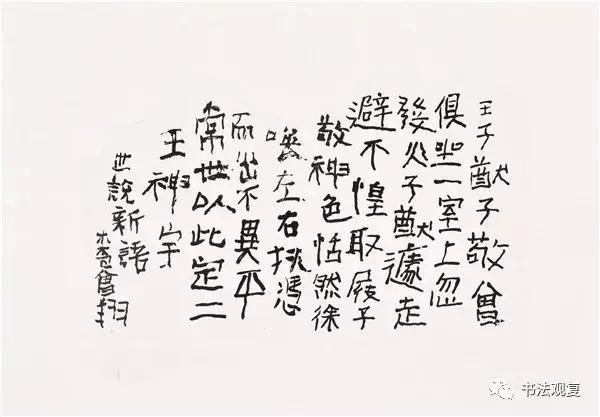 王子猷子敬曾
俱坐一室上忽
發火子猷遽走
避不惶取屐子
敬神色恬然徐
喚左右扶憑
而出不異平
常世以此定二
王神宇
世說新語
木斋曾翔
书法观复